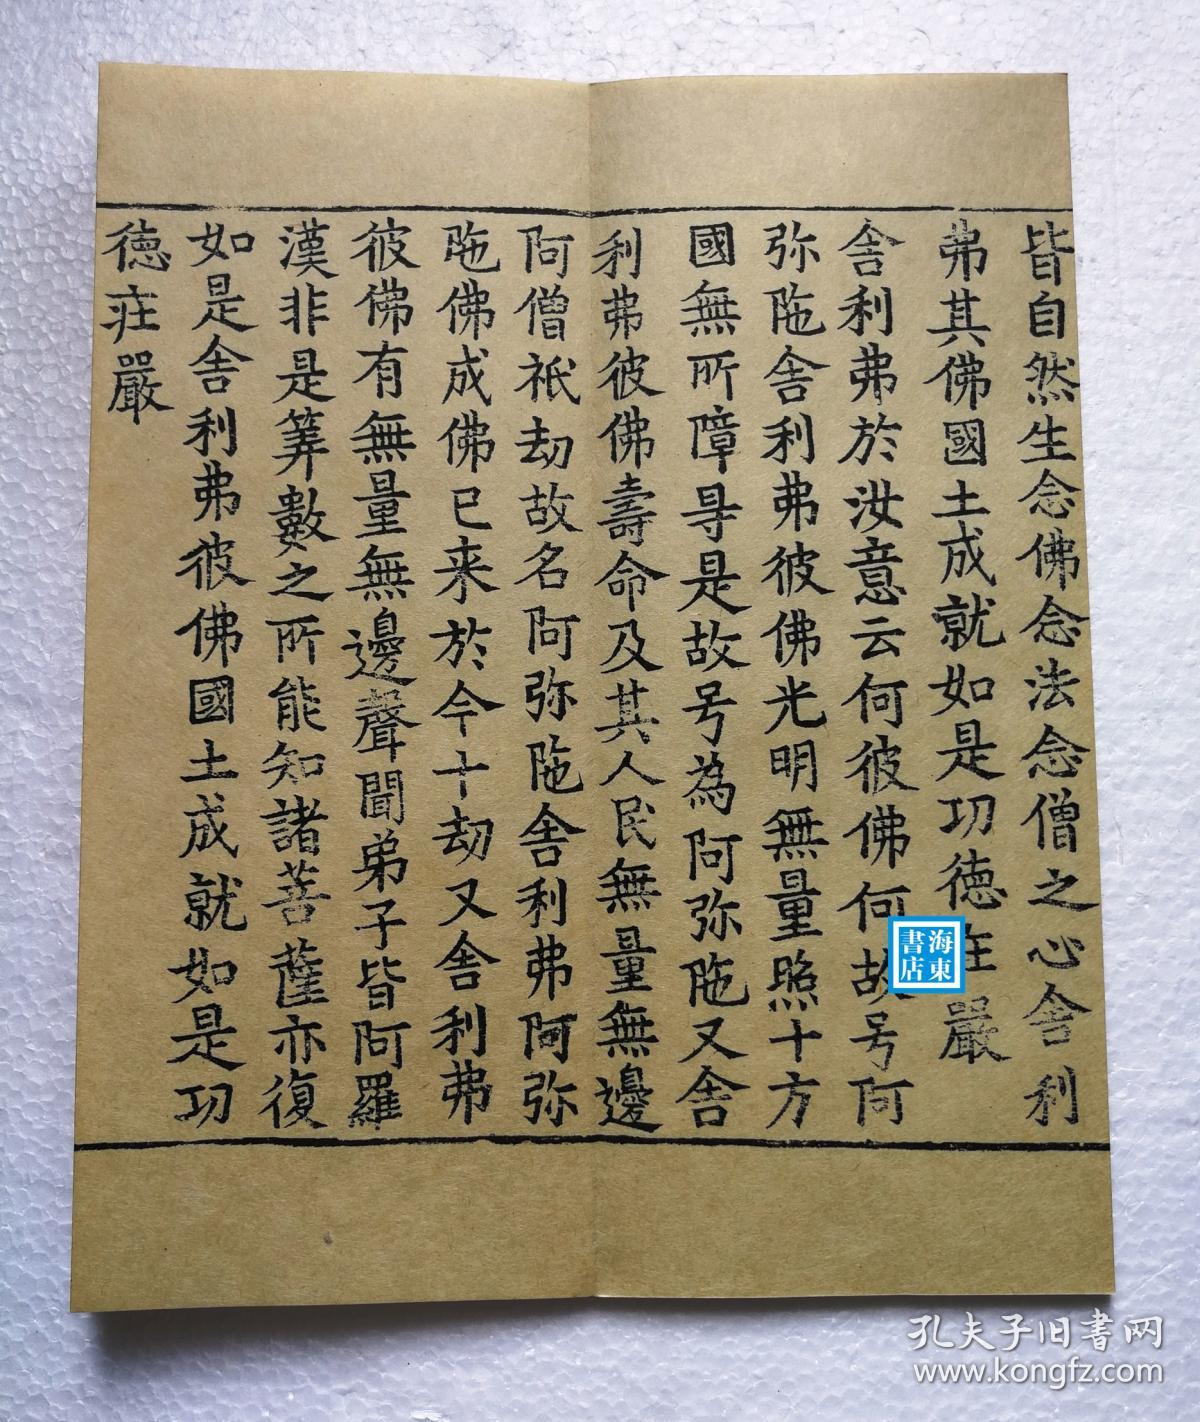 皆自然生念佛念法念僧之心舍利
弗其佛國土成就如是功德庄嚴
舍利弗於汝意云何彼佛何故号阿
弥陁舍利弗彼佛光明無量照十方
國無所障㝵是故号為阿弥陁又舍
利弗彼佛壽命及其人民無量無邊
阿僧祇劫故名阿弥陁舍利弗阿弥
陁佛成佛已来於今十劫又舍利弗
彼佛有無量無邊聲聞弟子皆阿羅
漢非是筭數之所能知諸菩薩亦復
如是舍利弗彼佛國土成就如是功
德庄嚴
海東書店
孔夫子旧書网
www.kongfz.com